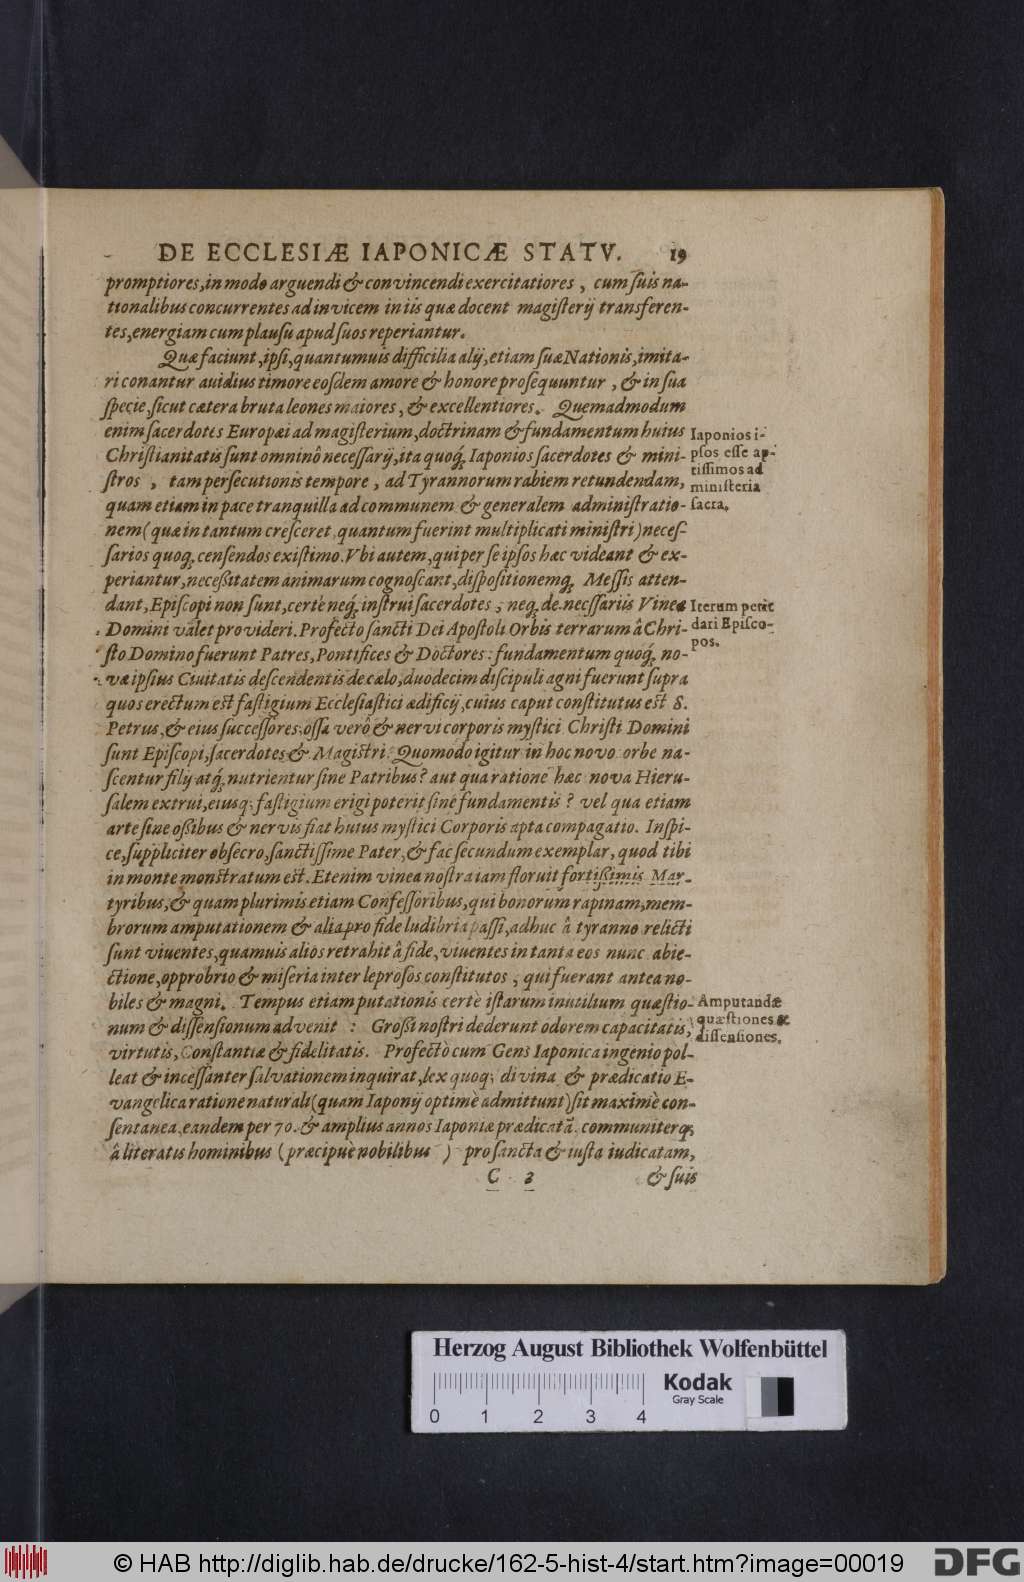 DE ECCLESIÆ IAPONICÆ STATV. 19
promptiores, in modo arguendi & convincendi exercitatiores, cum suis na-
tionalibus concurrentes ad invicem in iis quæ docent magisterij transferen-
tes, energiam cum plausu apud suos reperiantur.
Quæ faciunt, ipsi, quantumuis difficilia alij, etiam suæ Nationis, imita-
ri conantur auidius timore eosdem amore & honore prosequuntur, & in sua
specie, sicut cætera bruta leones maiores, & excellentiores. Quemadmodum
enim sacerdotes Europæi ad magisterium, doctrinam & fundamentum huius
Christianitatis sunt omninò necessarij, ita quoq́; Iaponios sacerdotes & mini-
stros, tam persecutionis tempore, ad Tyrannorum rabiem retundendam,
quam etiam in pace tranquilla ad communem & generalem administratio-
nem (quæ in tantum cresceret, quantum fuerint multiplicati ministri) neces-
sarios quoq; censendos existimo. Vbi autem, qui per se ipsos hæc videant & ex-
periantur, neceßitatem animarum cognoscant, dispositionemq́; Messis atten-
dant, Episcopi non sunt, certè neq́; instrui sacerdotes, neq; de necssariis Vineæ
Domini valet provideri. Profectò sancti Dei Apostoli Orbis terrarum â Chri-
sto Domino fuerunt Patres, Pontifices & Doctores: fundamentum quoq́; no-
væ ipsius Ciuitatis descendentis de cælo, duodecim discipuli agni fuerunt supra
quos erectum est fastigium Ecclesiastici ædificij, cuius caput constitutus est S.
Petrus, & eius successores; ossa verò & nervi corporis mystici Christi Domini
sunt Episcopi, sacerdotes & Magistri. Quomodo igitur in hoc novo orbe na-
scentur filij atq́; nutrientur sine Patribus? aut qua ratione hæc nova Hieru-
salem extrui, eiusq; fastigium erigi poterit sine fundamentis? vel qua etiam
arte sine oßibus & nervis fiat huius mystici Corporis apta compagatio. Inspi-
ce, suppliciter obsecro, sanctissime Pater, & fac secundum exemplar, quod tibi
in monte monstratum est. Etenim vinea nostra iam floruit fortißimis Mar-
tyribus, & quam plurimis etiam Confessoribus, qui bonorum rapinam, mem-
brorum amputationem & alia pro fide ludibria passi, adhuc â tyranno relicti
sunt viuentes, quamuis alios retrahit â fide, viuentes in tanta eos nunc abie-
ctione, opprobrio & miseria inter leprosos constitutos, qui fuerant antea no-
biles & magni. Tempus etiam putationis certè istarum inutilium quæstio-
num & dissensionum advenit: Großi nostri dederunt odorem capacitatis,
virtutis, Constantiæ & fidelitatis. Profectò cum Gens Iaponica ingenio pol-
leat & incessanter salvationem inquirat, lex quoq; divina & prædicatio E-
vangelica ratione naturali (quam Iaponij optimè admittunt) sit maximè con-
sentanea, eandem per 70. & amplius annos Iaponiæ prædicatã, communiterq;
â literatis hominibus (præcipuè nobilibus) pro sancta & iusta iudicatam,
C 3 & suis
Iaponios i-
psos esse ap-
tissimos ad
ministeria
sacra.
Iterum petit
dari Episco-
pos.
Amputandæ
quæstiones &
dissensiones.
Herzog August Bibliothek Wolfenbüttel
0 1 2 3 4
Kodak
Gray Scale
© HAB http://diglib.hab.de/drucke/162-5-hist-4/start.htm?image=00019
DFG